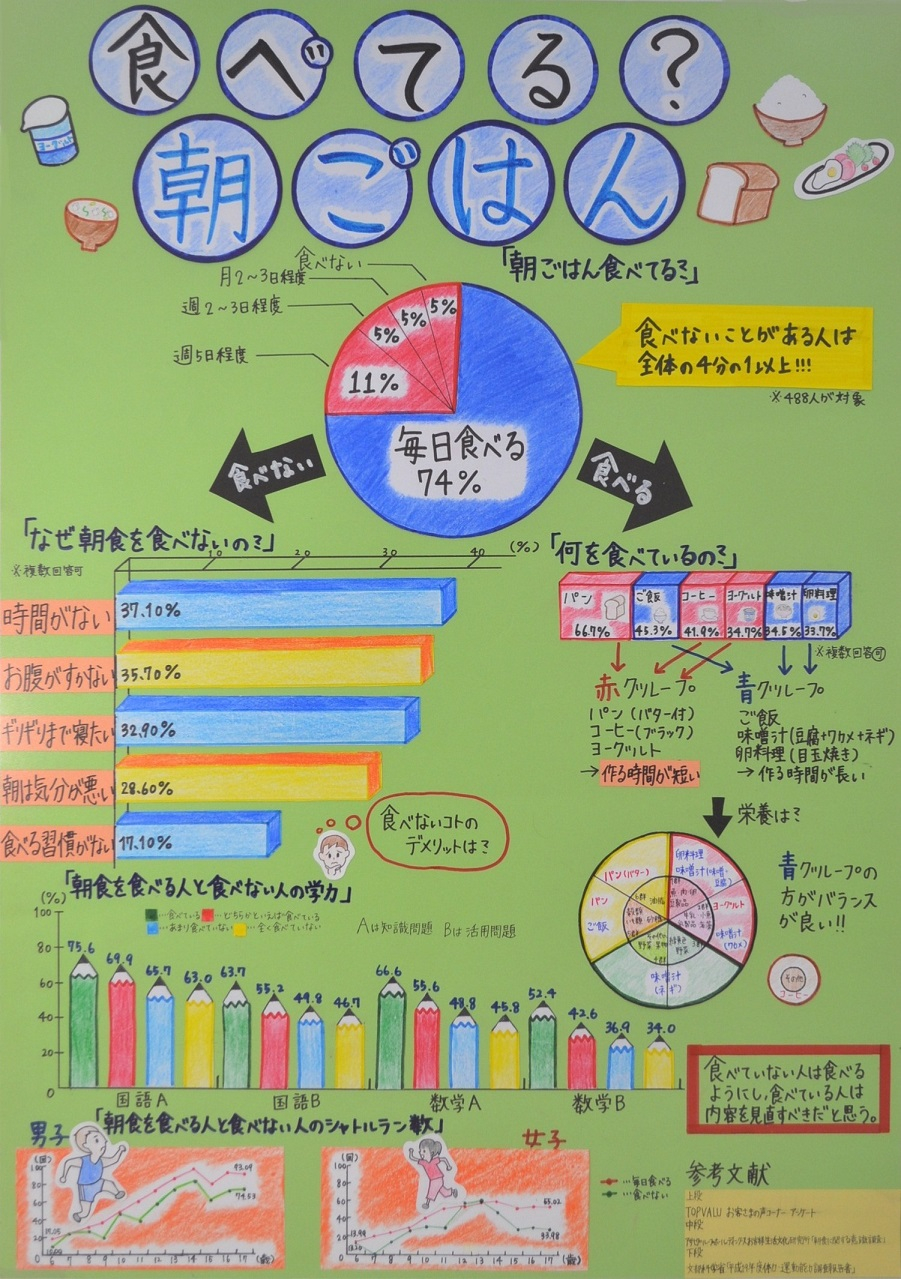 食べてる?
朝ごはん
ヨーグルト
「朝ごはん食べてる?」
食べない
月2~3日程度
週2~3日程度
週5日程度
5%
5%
5%
11%
毎日食べる
74%
食べないことがある人は
全体の4分の1以上!!!
※488人が対象
食べない
食べる
「なぜ朝食を食べないの?」
※複数回答可
10 20 30 40 (%)
時間がない 37.10%
お腹がすかない 35.70%
ギリギリまで寝たい 32.90%
朝は気分が悪い 28.60%
食べる習慣がない 17.10%
食べないコトの
デメリットは?
「何を食べているの?」
パン ご飯 コーヒー ヨーグルト 味噌汁 卵料理
66.7% 45.3% 41.9% 34.7% 34.5% 33.7%
※複数回答可
赤グループ
パン(バター付)
コーヒー(ブラック)
ヨーグルト
→作る時間が短い
青グループ
ご飯
味噌汁(豆腐+ワカメ+ネギ)
卵料理(目玉焼き)
→作る時間が長い
栄養は?
パン(バター)
卵料理
味噌汁(味噌・豆腐)
パン
ご飯
ヨーグルト
味噌汁
(ワカメ)
味噌汁
(ネギ)
その他
コーヒー
青グループの
方がバランス
が良い!!
「朝食を食べる人と食べない人の学力」
(%)
…食べている …どちらかといえば食べている
…あまり食べていない …全く食べていない
Aは知識問題 Bは活用問題
100
80
60
40
20
0
75.6 69.9 65.7 63.0 63.7 55.2 49.8 46.7 66.6 55.6 48.8 45.8 52.4 42.6 36.9 34.0
国語A 国語B 数学A 数学B
食べていない人は食べる
ようにし、食べている人は
内容を見直すべきだと思う。
「朝食を食べる人と食べない人のシャトルラン数」
男子
(回)
100
80
60
40
20
0
93.09
74.53
6 7 8 9 10 11 12 13 14 15 16 17 (歳)
女子
(回)
100
80
60
40
20
0
65.02
6 7 8 9 10 11 12 13 14 15 16 17 (歳)
…毎日食べる
…食べない
参考文献
上段
TOPVALU お客さまの声コーナー アンケート
中段
下段